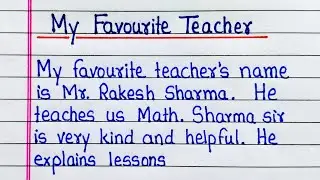 My Favourite Teacher
My favourite teacher's name
is Mr. Rakesh Sharma. He
teaches us Math. Sharma sir
is very kind and helpful. He
explains lessons